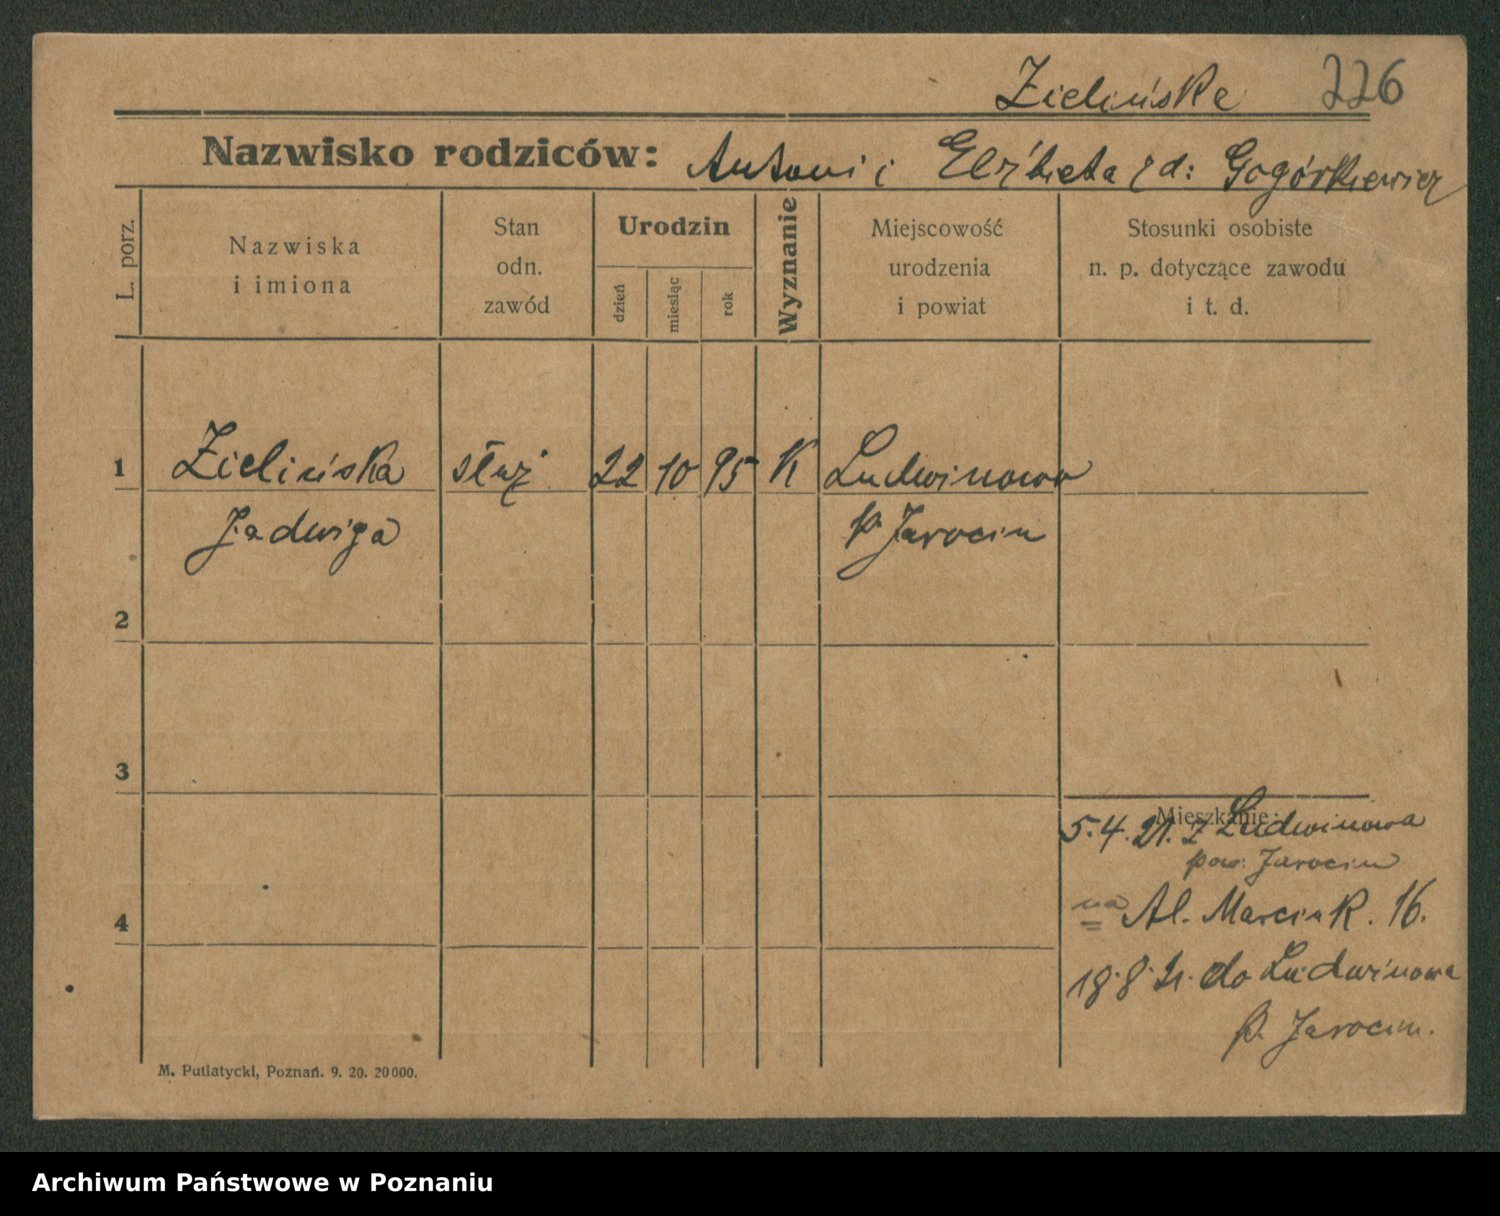 Zielińska 226
Nazwisko rodziców: Antoni i Elżbieta zd: Gogórkiewicz
L. porz.
Nazwiska
i imiona
Stan
odn.
zawód
Urodzin
dzień
miesiąc
rok
Wyznanie
Miejscowość
urodzenia
i powiat
Stosunki osobiste
n. p. dotyczące zawodu
i t. d.
1 Zielińska służ 22 10 95 K Ludwinowo
Jadwiga p. Jarocin
2
3
Mieszkanie:
5.4.21. z Ludwinowa
pow. Jarocin
4
na Al. Marcink. 16.
18.8.21. do Ludwinowa
p. Jarocin.
M. Putiatycki, Poznań. 9. 20. 20000.
Archiwum Państwowe w Poznaniu